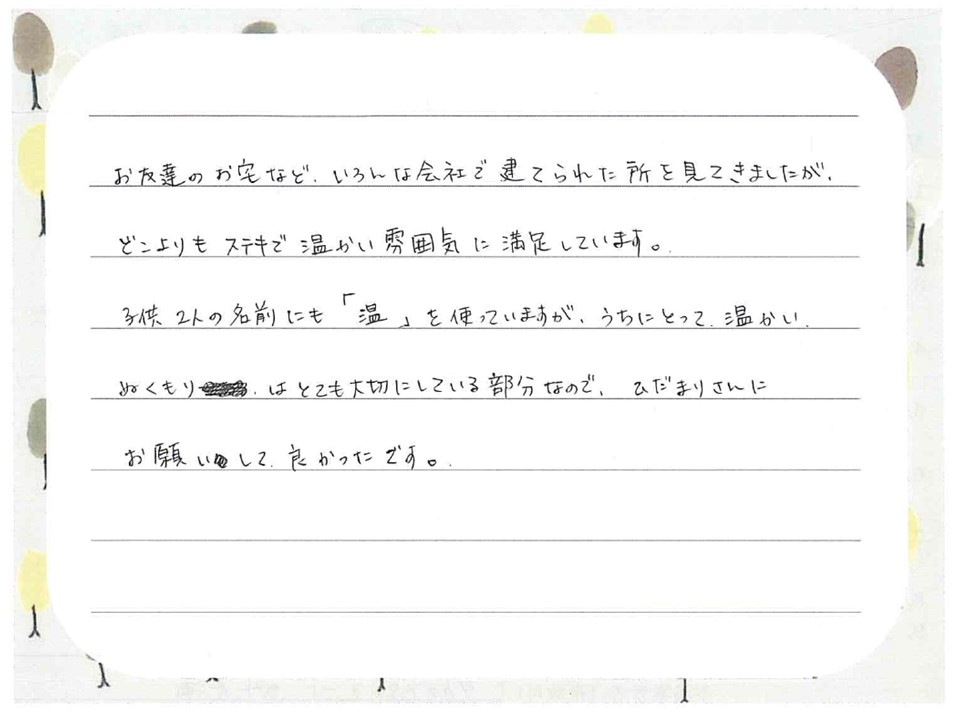 お友達のお宅など、いろんな会社で建てられた所を見てきましたが、
どこよりもステキで温かい雰囲気に満足しています。
子供2人の名前にも「温」を使っていますが、うちにとって、温かい、
ぬくもり、はとても大切にしている部分なので、ひだまりさんに
お願いして、良かったです。